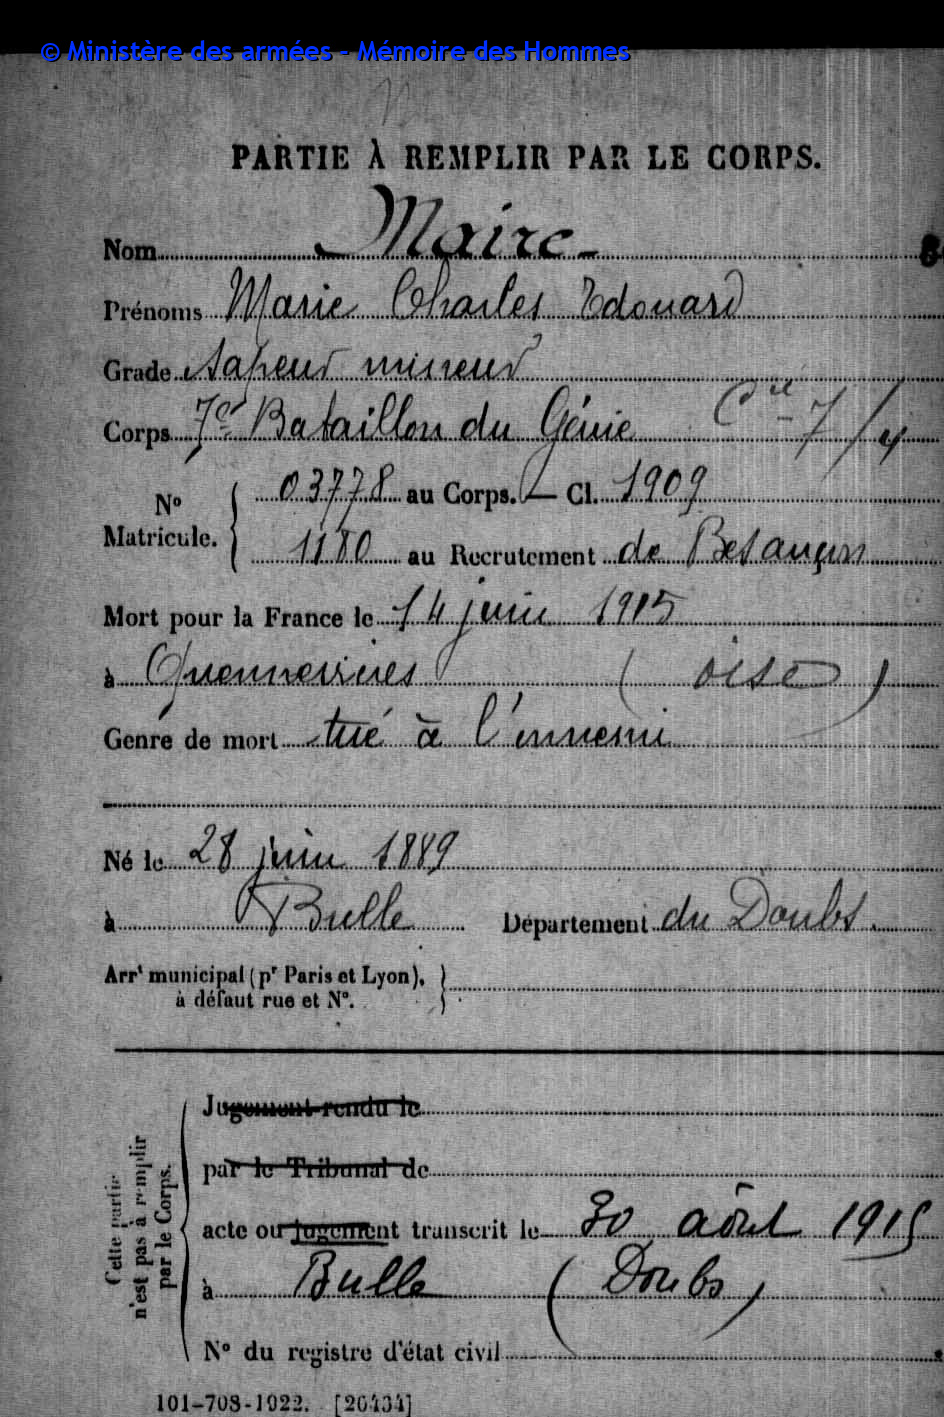 © Ministère des armées - Mémoire des Hommes
PARTIE À REMPLIR PAR LE CORPS.
Nom Maire
Prénoms Marie Charles Edouard
Grade Sapeur mineur
Corps 7e Bataillon du Génie Cie 7/4
No Matricule. { 03778 au Corps. — Cl. 1909
1180 au Recrutement de Besançon
Mort pour la France le 14 juin 1915
à Quennevières (oise)
Genre de mort tué à l'ennemi
Né le 28 juin 1889
à Bulle Département du Doubs.
Arrt municipal (pr Paris et Lyon),
à défaut rue et No.
Cette partie n'est pas à remplir par le Corps.
Jugement rendu le
par le Tribunal de
acte ou jugement transcrit le 30 aôut 1915
à Bulle (Doubs)
No du registre d'état civil
101-708-1922. [26434]